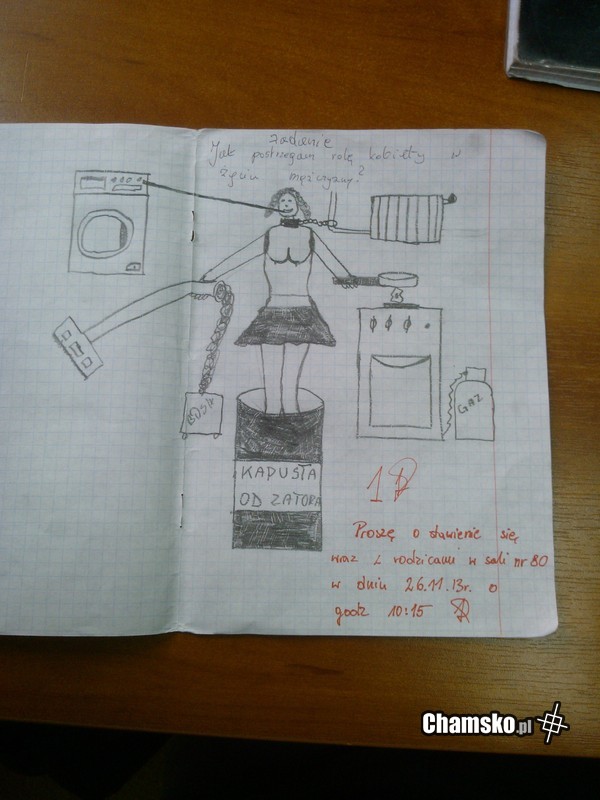 zadanie
Jak postrzegam rolę kobiety w
życiu mężczyzny?
GAZ
KAPUSTA
OD ZATORA
1
Proszę o stawienie się
wraz z rodzicami w sali nr 80
w dniu 26.11.13r. o
godz 10:15
Chamsko.pl